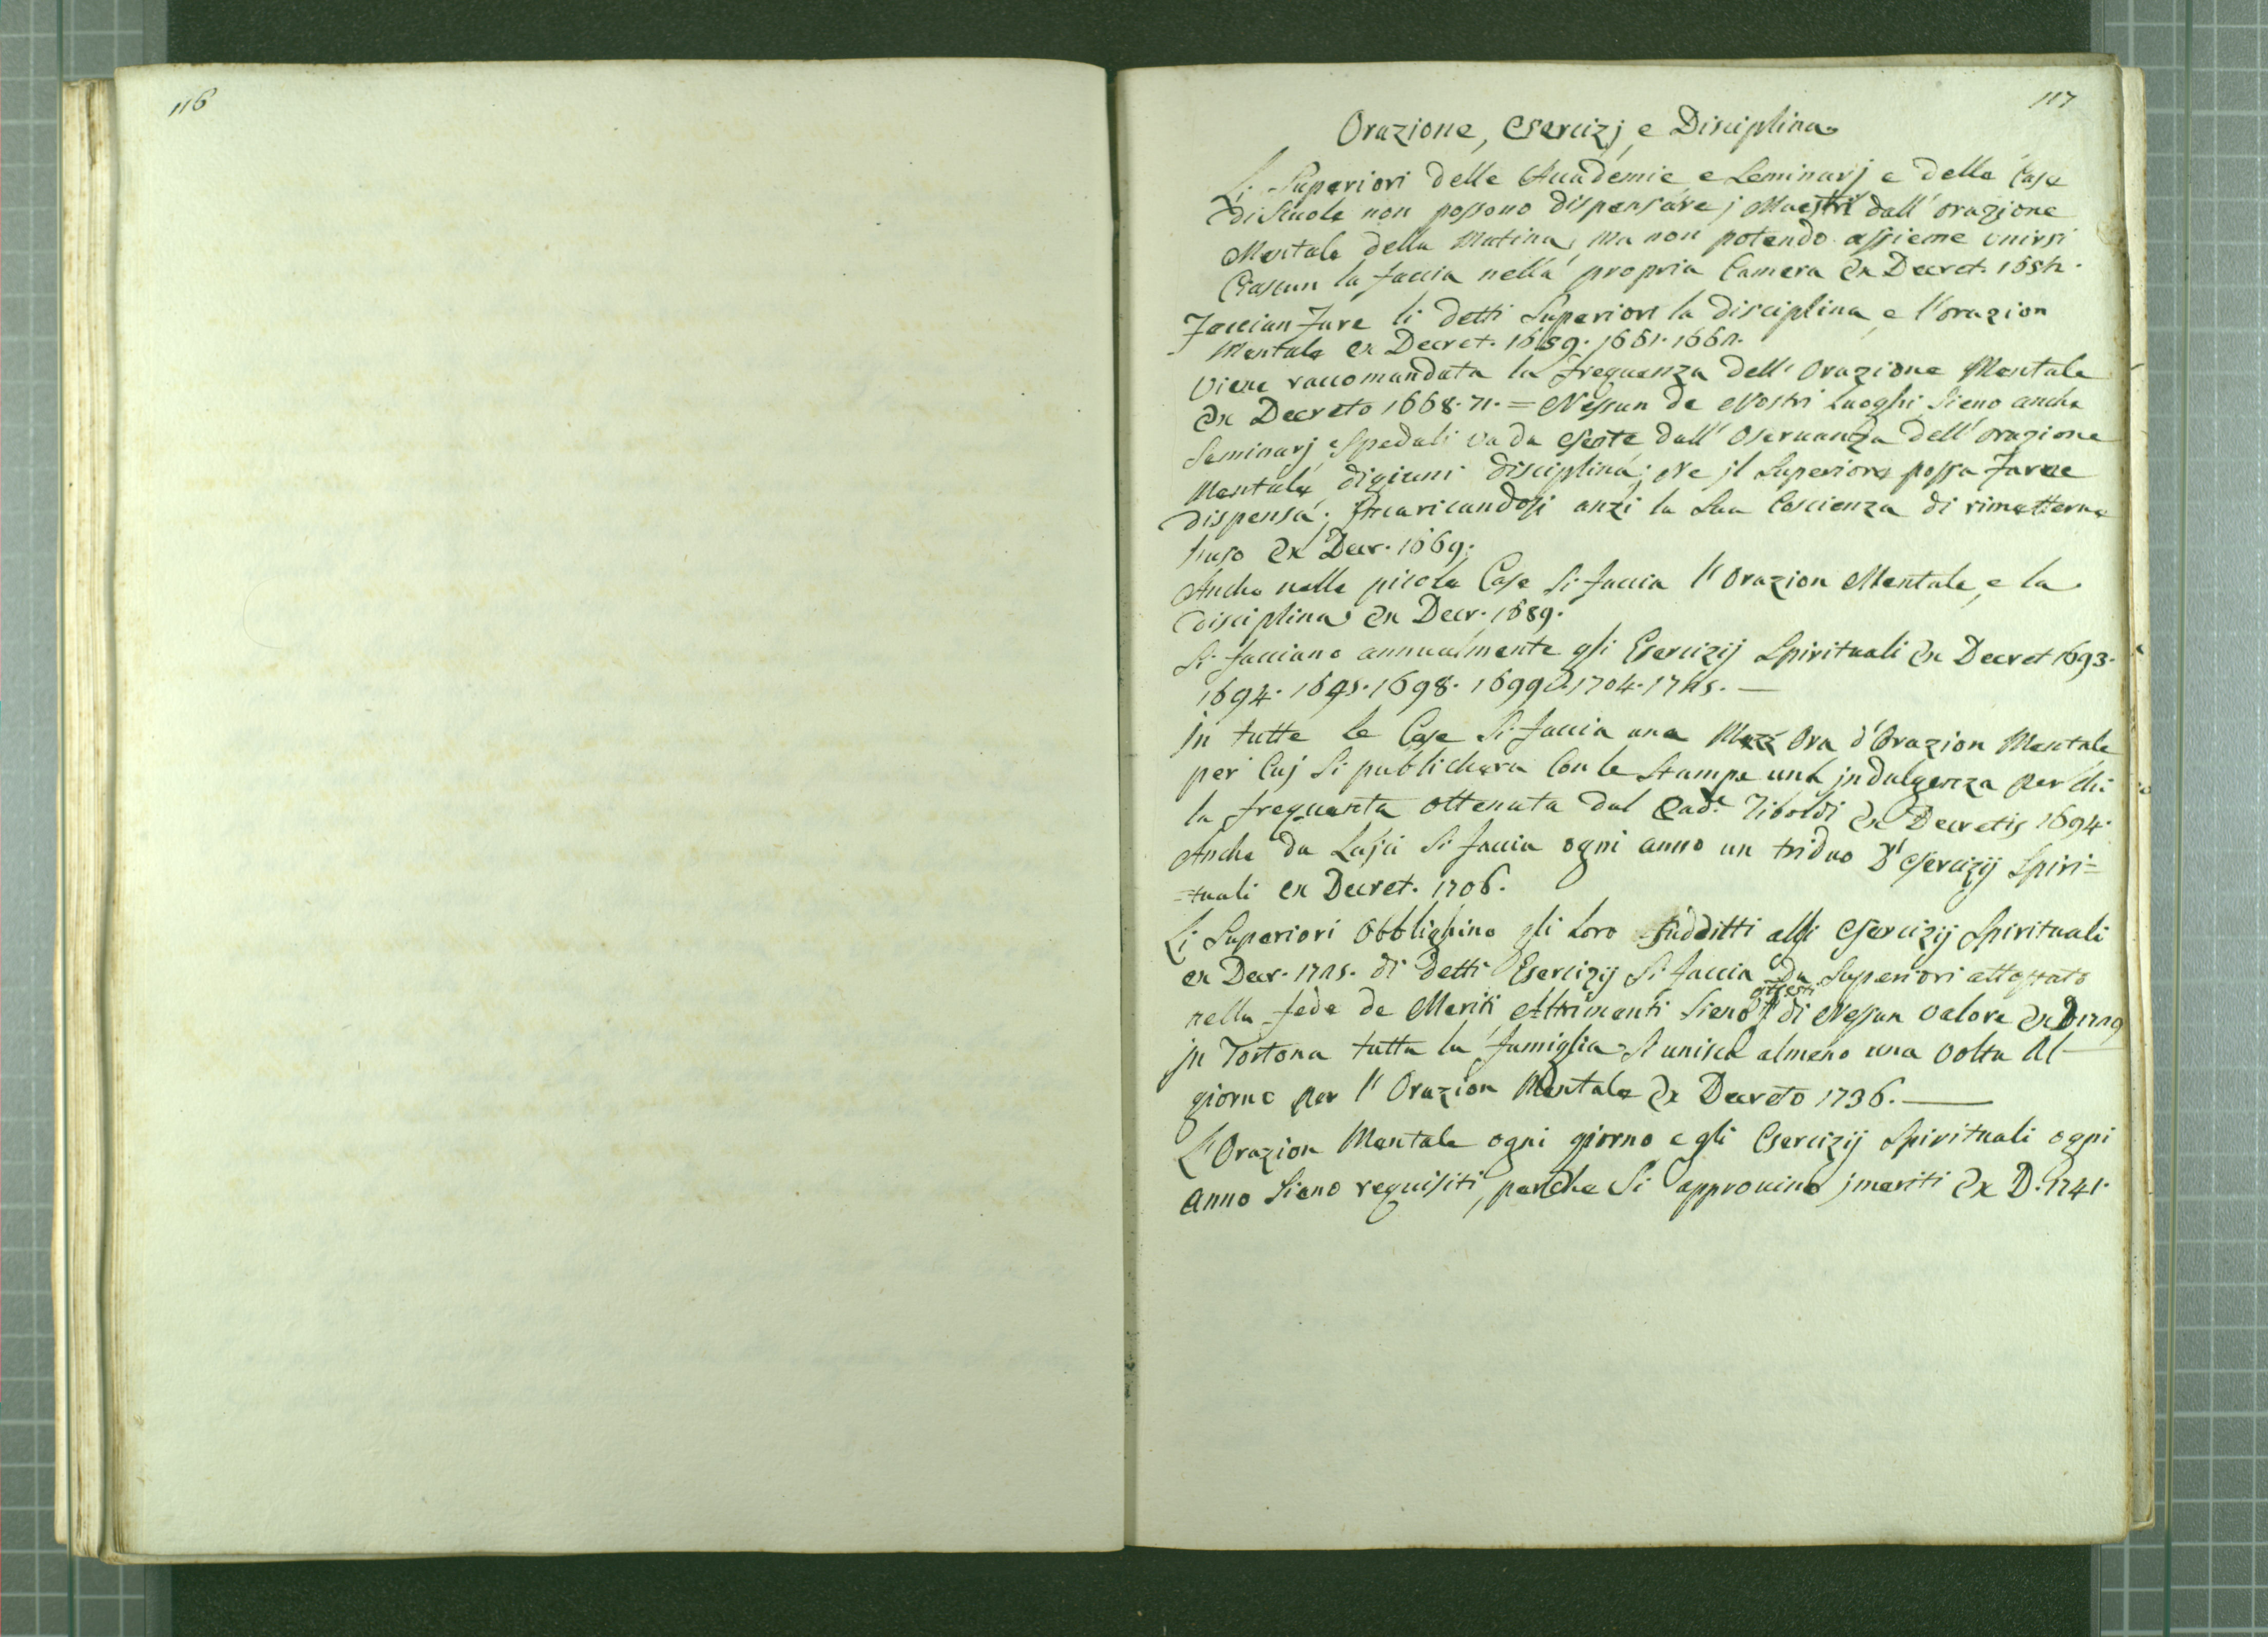 116
117
Orazione, Esercizj, e Disciplina
Li Superiori delle Accademie e Seminarj e delle Case
di Scuole non possono dispensare j Maestri dall' orazione
Mentale della Matina, ma non potendo assieme vnirsi
Ciascun la faccia nella propria Camera Ex Decret. 1652.
Faccian Fare li detti Superiori la disciplina, e l'orazion
Mentale ex Decret. 1659. 1661. 1662.
Viene raccomandata la frequenza dell' Orazione Mentale
Ex Decreto 1668. 71. = Nessun de Nostri Luoghi Sieno anche
Seminarj e Spedali vada esente dall' Oservanza dell' orazione
Mentale, digiuni disciplina; Ne jl Superiore possa Farne
dispensa; Jncaricandosi anzi la Sua Coscienza di rimetterne
l'uso Ex Decr. 1669.
Anche nelle picole Case Si faccia l' Orazion Mentale, e la
disciplina Ex Decr. 1689.
Si facciano annualmente gli Esercizij Spirituali Ex Decret 1693.
1694. 1695. 1698. 1699. 1704. 1725. —
jn tutte le Case Si faccia una Mezz Ora d'Orazion Mentale
per Cuj Si publichera Con le Stampe una jndulgenza per chi
la frequenta ottenuta dal Pad.e Tiboldi Ex Decretis 1694.
Anche da Lajci Si faccia ogni anno un triduo d' Esercizij Spiri=
=tuali ex Decret. 1706.
Li Superiori Obblighino gli Loro Sudditti alli Esercizij Spirituali
ex Decr. 1725. di detti Esercizij Si faccia da Superiori attestato
nella fede de Meriti Altrimenti Sieno questi di Nessun valore Ex D 1729
jn Tortona tutta la famiglia Si unisca almeno una volta Al —
giorno per l' Orazion Mentale Ex Decreto 1736. —
L'Orazion Mentale ogni giorno e gli Esercizij Spirituali ogni
Anno Sieno requisiti, perche Si approvino j meriti Ex D. 1741.